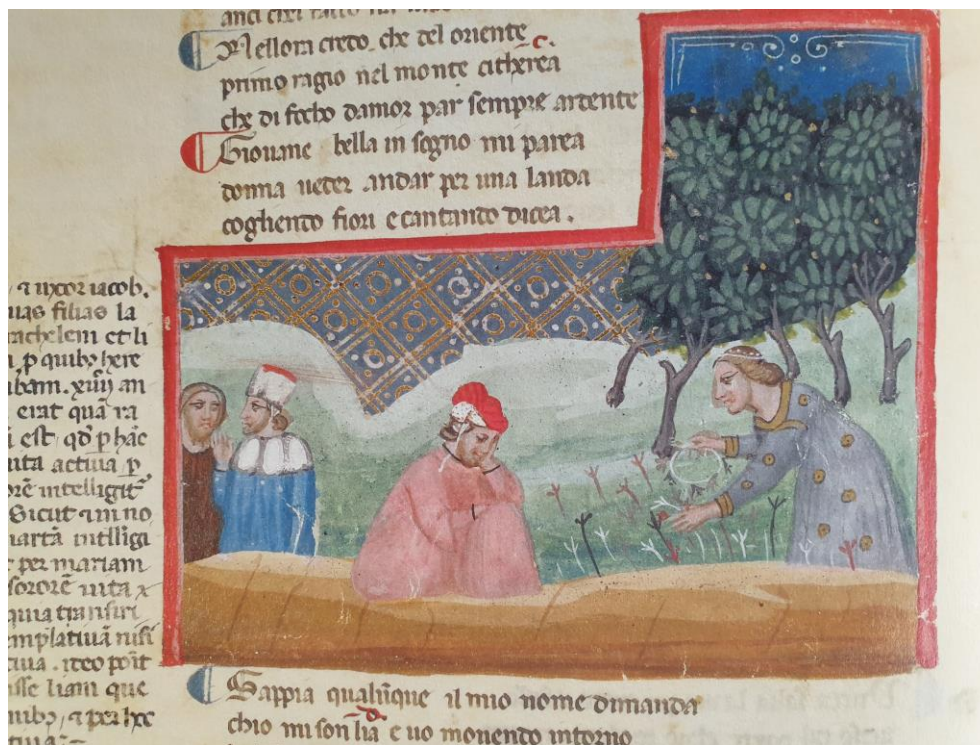 Nellora credo. che del oriente
c.
primo ragio nel monte citherea
che di focho damor par sempre ardente
Giouane bella in sogno mi parea
donna ueder andar per una landa
cogliendo fiori e cantando dicea.
⁊ uxor iacob.
uas filias la
rachelem et li
p quibꝫ here
bam. xiiij an
erat quā ra
est. qd p hāc
uita actiua p
orē intelligit
Sicut ⁊ in no
martā intelligi
per mariam
sororē uita
quia transiri
mplatiuā nisi
tiua. ideo poīt
isse liam que
⁊ per hec
tiua
Sappia qualunque il mio nome dimanda
d.
chio mi son lia e uo mouendo intorno